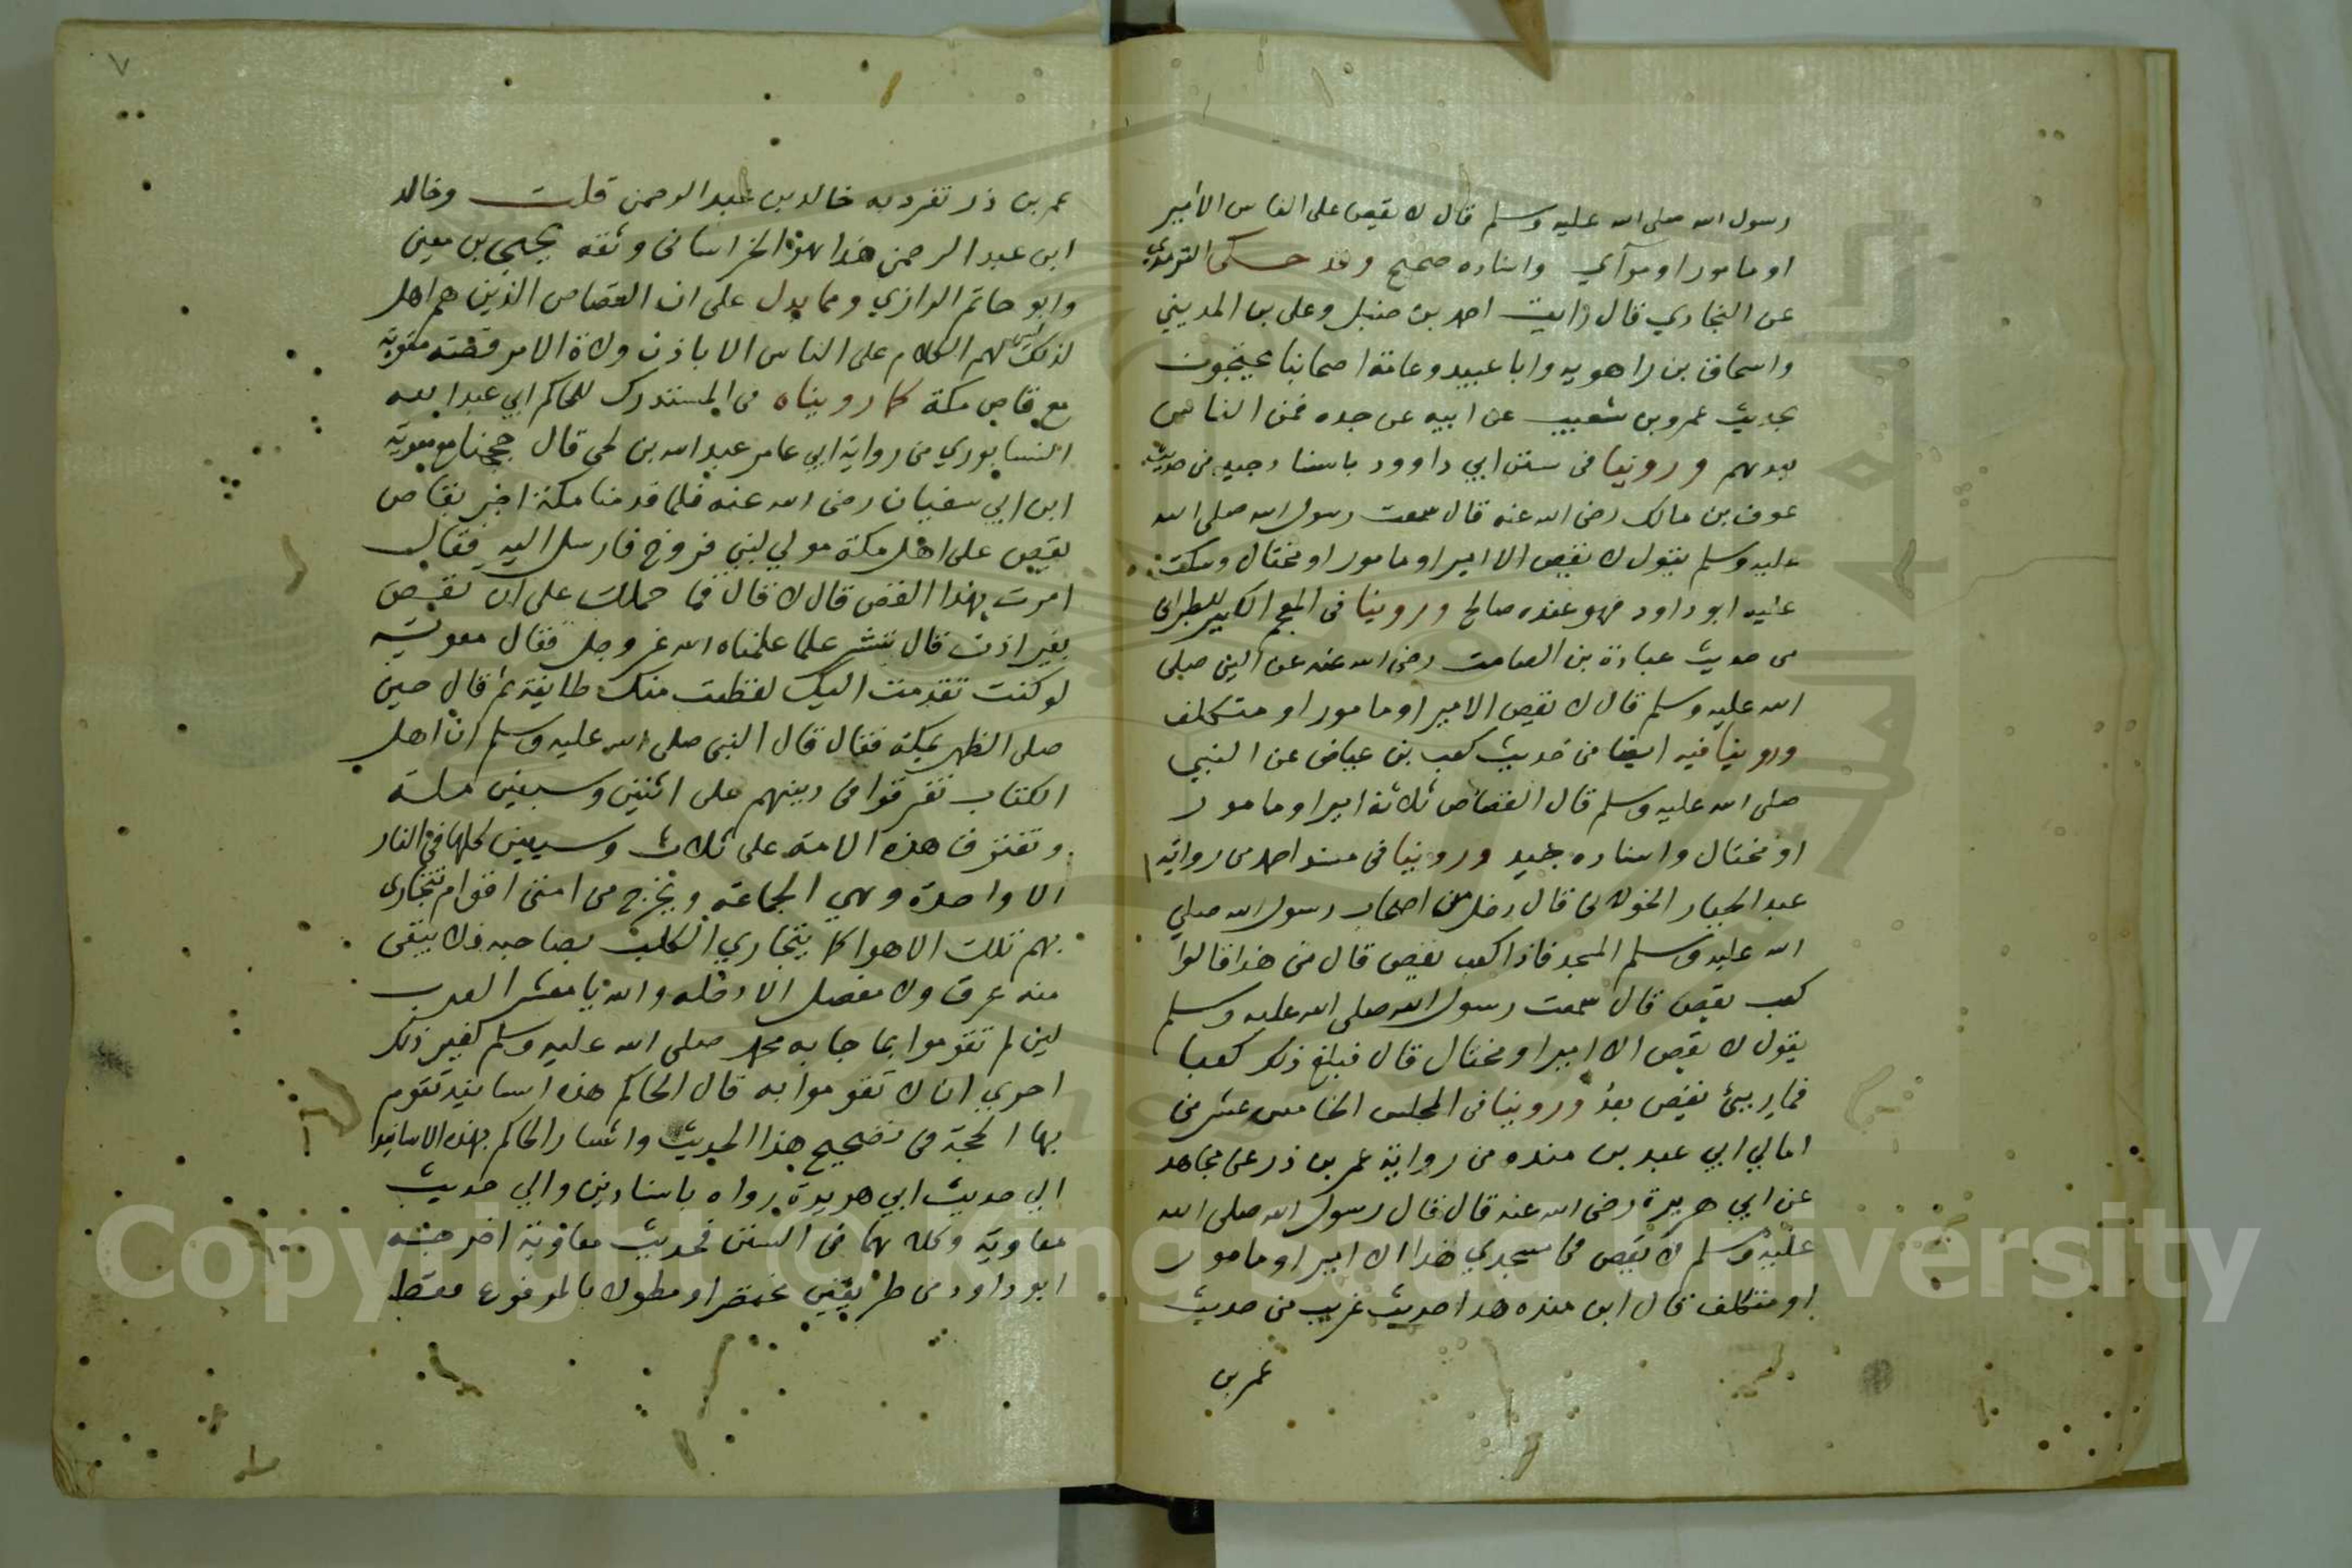 رسول الله صلى الله عليه وسلم قال لا يقص على الناس الا امير
او مامور او مرآي واسناده صحيح وقد حكى الترمذي
عن البخاري قال رايت احمد بن حنبل وعلى بن المديني
واسحاق بن راهويه وابا عبيد وعامة اصحابنا يحتجون
بحديث عمرو بن شعيب عن ابيه عن جده فمن الناس
بعدهم وروينا في سنن ابي داوود باسناد جيد من حديث
عوف بن مالك رضى الله عنه قال سمعت رسول الله صلى الله
عليه وسلم يقول لا يقص الا امير او مامور او مختال وسكت
عليه ابو داود فهو عنده صالح وروينا في المعجم الكبير للطبراني
من حديث عبادة بن الصامت رضى الله عنه عن النبي صلى
الله عليه وسلم قال لا يقص الا امير او مامور او متكلف
وروينا فيه ايضا من حديث كعب بن عياض عن النبي
صلى الله عليه وسلم قال القصاص ثلاثة امير او مامور
او مختال واسناده جيد وروينا في مسند احمد من رواية
عبد الجبار الخولاني قال دخل من اصحاب رسول الله صلي
الله عليه وسلم المسجد فاذا كعب يقص قال من هذا قالوا
كعب يقص قال سمعت رسول الله صلى الله عليه وسلم
يقول لا يقص الا امير او مختال قال فبلغ ذلك كعبا
فما ريئ يقص بعد وروينا في المجلس الخامس عشر من
امالي ابي عبد بن منده من رواية عمر بن ذر عن مجاهد
عن ابي هريرة رضى الله عنه قال قال رسول الله صلى الله
عليه وسلم لا يقص في مسجدي هذا الا امير او مامور
او متكلف قال ابن منده هذا حديث غريب من حديث
عمر بن
٧
عمر بن ذر تفرد به خالد بن عبد الرحمن قلت وخالد
ابن عبد الرحمن هذا هو الخراساني وثقه يحيى بن معين
وابو حاتم الرازي ومما يدل على ان القصاص الذين هم اهل
لذلك ليس لهم الكلام على الناس الا باذن ولاة الامر قصته معوية
مع قاص مكة كما رويناه في المستدرك للحاكم ابي عبد الله
النسابوري من رواية ابي عامر عبد الله بن لحي قال حججنا مع معوية
ابن ابي سفيان رضى الله عنه فلما قدمنا مكة اخبر بقاص
يقص على اهل مكة مولي لبني فروخ فارسل اليه فقال
امرت بهذا القص قال لا قال فما حملك على ان تقص
بغير اذن قال ننشر علما علمناه الله عز وجل فقال معوية
لو كنت تقدمت اليك لقطعت منك طايفة ثم قال حين
صلى الظهر بمكة فقال قال النبي صلى الله عليه وسلم ان اهل
الكتاب تفرقوا في دينهم على اثنين وسبعين ملة
وتفترق هذه الامة على ثلاث وسبعين كلها في النار
الا واحدة وهي الجماعة ويخرج من امتي اقوام تتجارى
بهم تلك الاهوا كما يتجاري الكلب بصاحبه فلا يبقى
منه عرق ولا مفصل الا دخله والله يا معشر العرب
لين لم تقوموا بما جا به محمد صلى الله عليه وسلم لغير ذلك
احري ان لا تقوموا به قال الحاكم هذه اسانيد تقوم
بها الحجة في تصحيح هذا الحديث واشار الحاكم بهذه الاسانيد
الي حديث ابي هريرة رواه باسنادين والي حديث
معاوية وكلاهما في السنن فحديث معاوية اخرجه
ابو داود من طريقين مختصرا ومطولا بالمرفوع فقط
Copyright © King Saud University